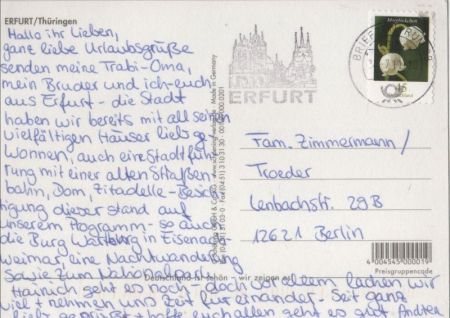 ERFURT/Thüringen
Hallo ihr Lieben,
ganz liebe Urlaubsgrüße
senden meine Trabi-Oma,
mein Bruder und ich euch
aus Erfurt - die Stadt
haben wir bereits mit all seinen
vielfältigen Häuser liebge-
wonnen, auch eine Stadtfüh-
rung mit einer alten Straßen-
bahn, Dom, Zitadelle-Besich-
tigung dieser stand auf
unserem Programm - so auch
die Burg Wartburg in Eisenach
Weimar eine Nachtwanderung
sowie zum Nationalpark
Hainich geht es noch - doch vor allem lachen wir
viel + nehmen uns Zeit für einander. Seit ganz
lieb gegrüßt + hoffe euch allen geht es gut.
Made in Germany
ERFURT
Maiglöckchen
45
Fam. Zimmermann/
Troeder
Lenbachstr. 29B
12621 Berlin
Deutschland ist schön - wir zeigen es!
4 004545 000019
Preisgruppencode